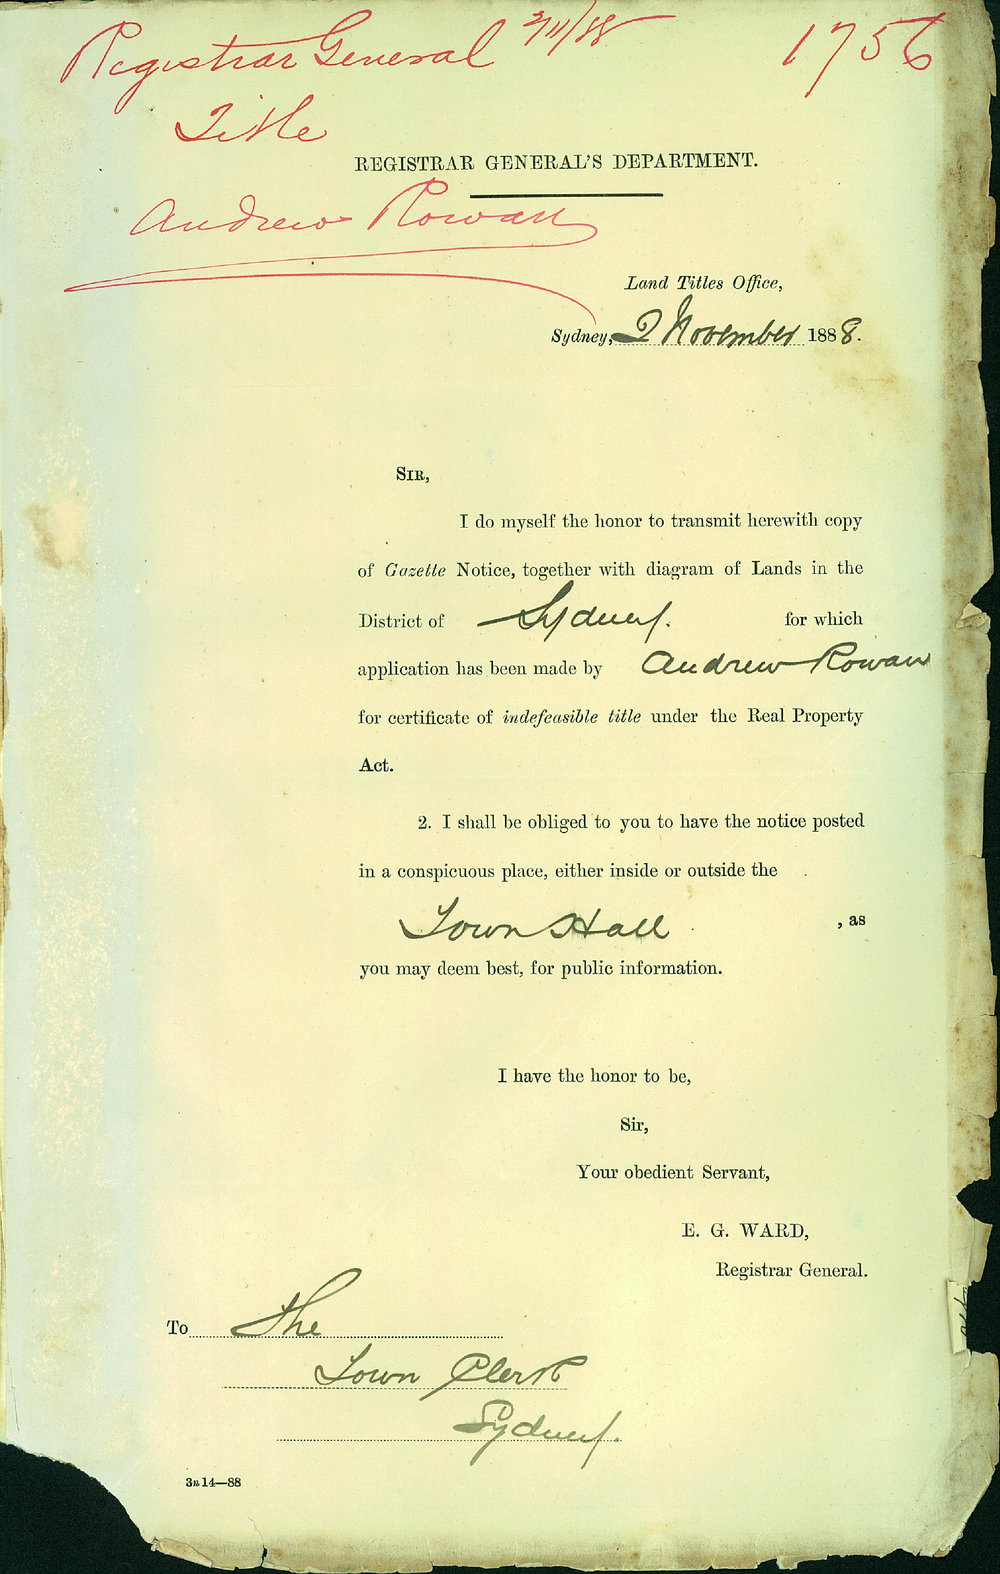 Registrar General 2/11/88 1756
Title
REGISTRAR GENERAL'S DEPARTMENT.
Andrew Rowan
Land Titles Office,
Sydney, 2 November 1888.
SIR,
I do myself the honor to transmit herewith copy
of Gazette Notice, together with diagram of Lands in the
District of Sydney. for which
application has been made by Andrew Rowan
for certificate of indefeasible title under the Real Property
Act.
2. I shall be obliged to you to have the notice posted
in a conspicuous place, either inside or outside the
Town Hall , as
you may deem best, for public information.
I have the honor to be,
Sir,
Your obedient Servant,
E. G. WARD,
Registrar General.
To The
Town Clerk
Sydney.
3n14—88